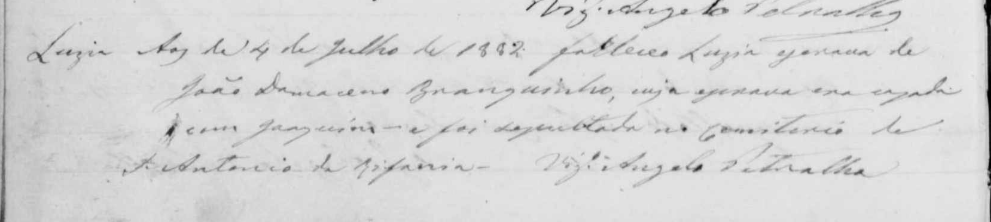 Vigº Angelo Petraglia
Luzia Aos de 4 de Julho de 1882 falleceo Luzia escrava de
João Damaceno Branquinho, cuja escrava era cazada
com Joaquim - e foi sepultada no Cemiterio de
S. Antonio da Rifania - Vigº Angelo Petraglia